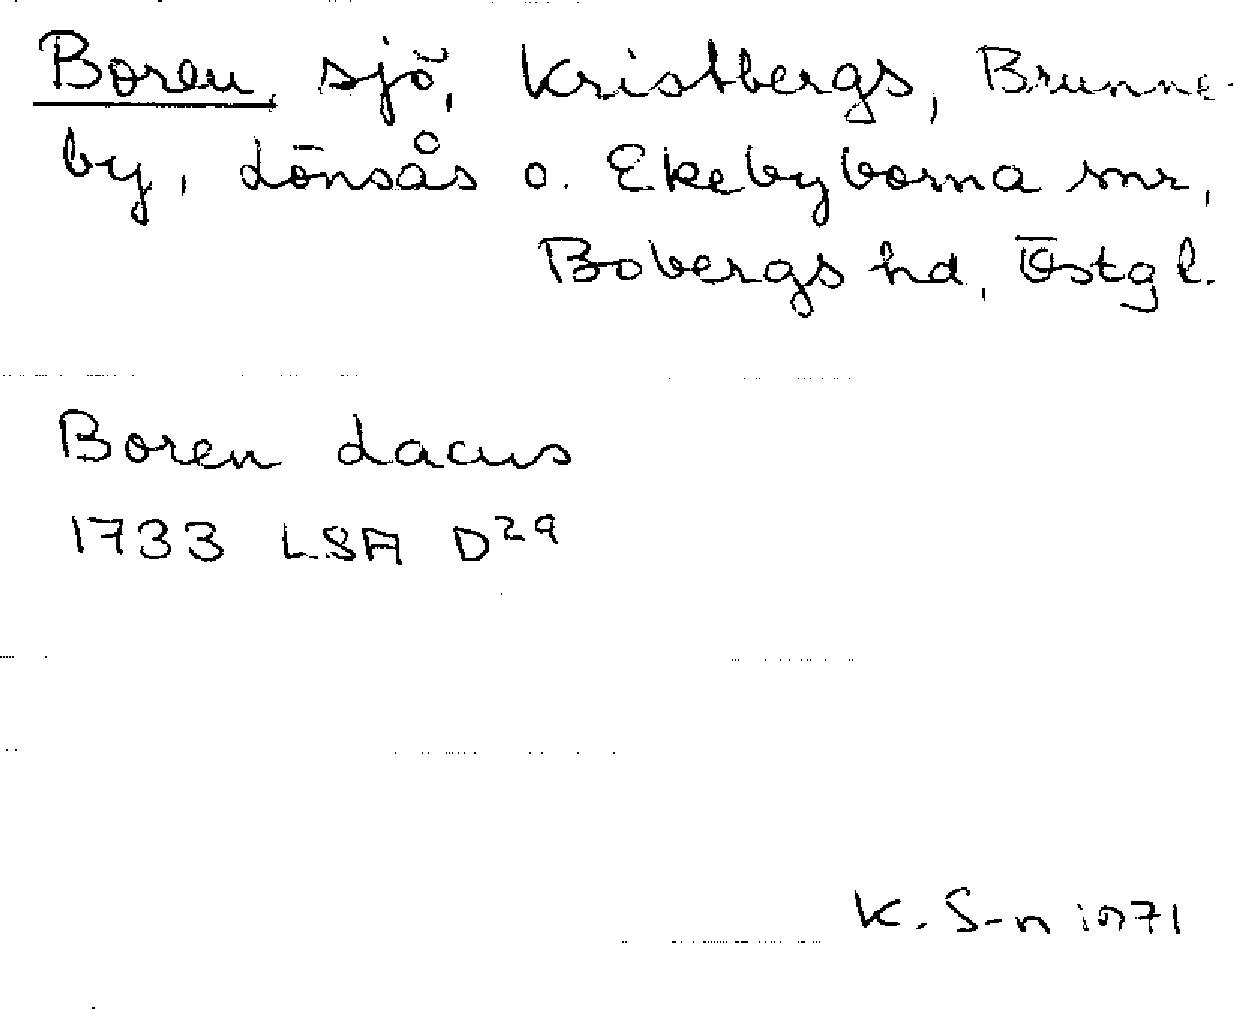 Boren, sjö, Kristbergs, Brunne-
by, Lönsås o. Ekebyborna snr,
Bobergs hd, Östgl.
Boren Lacus
1733 LSA D29
K. S-n 1971